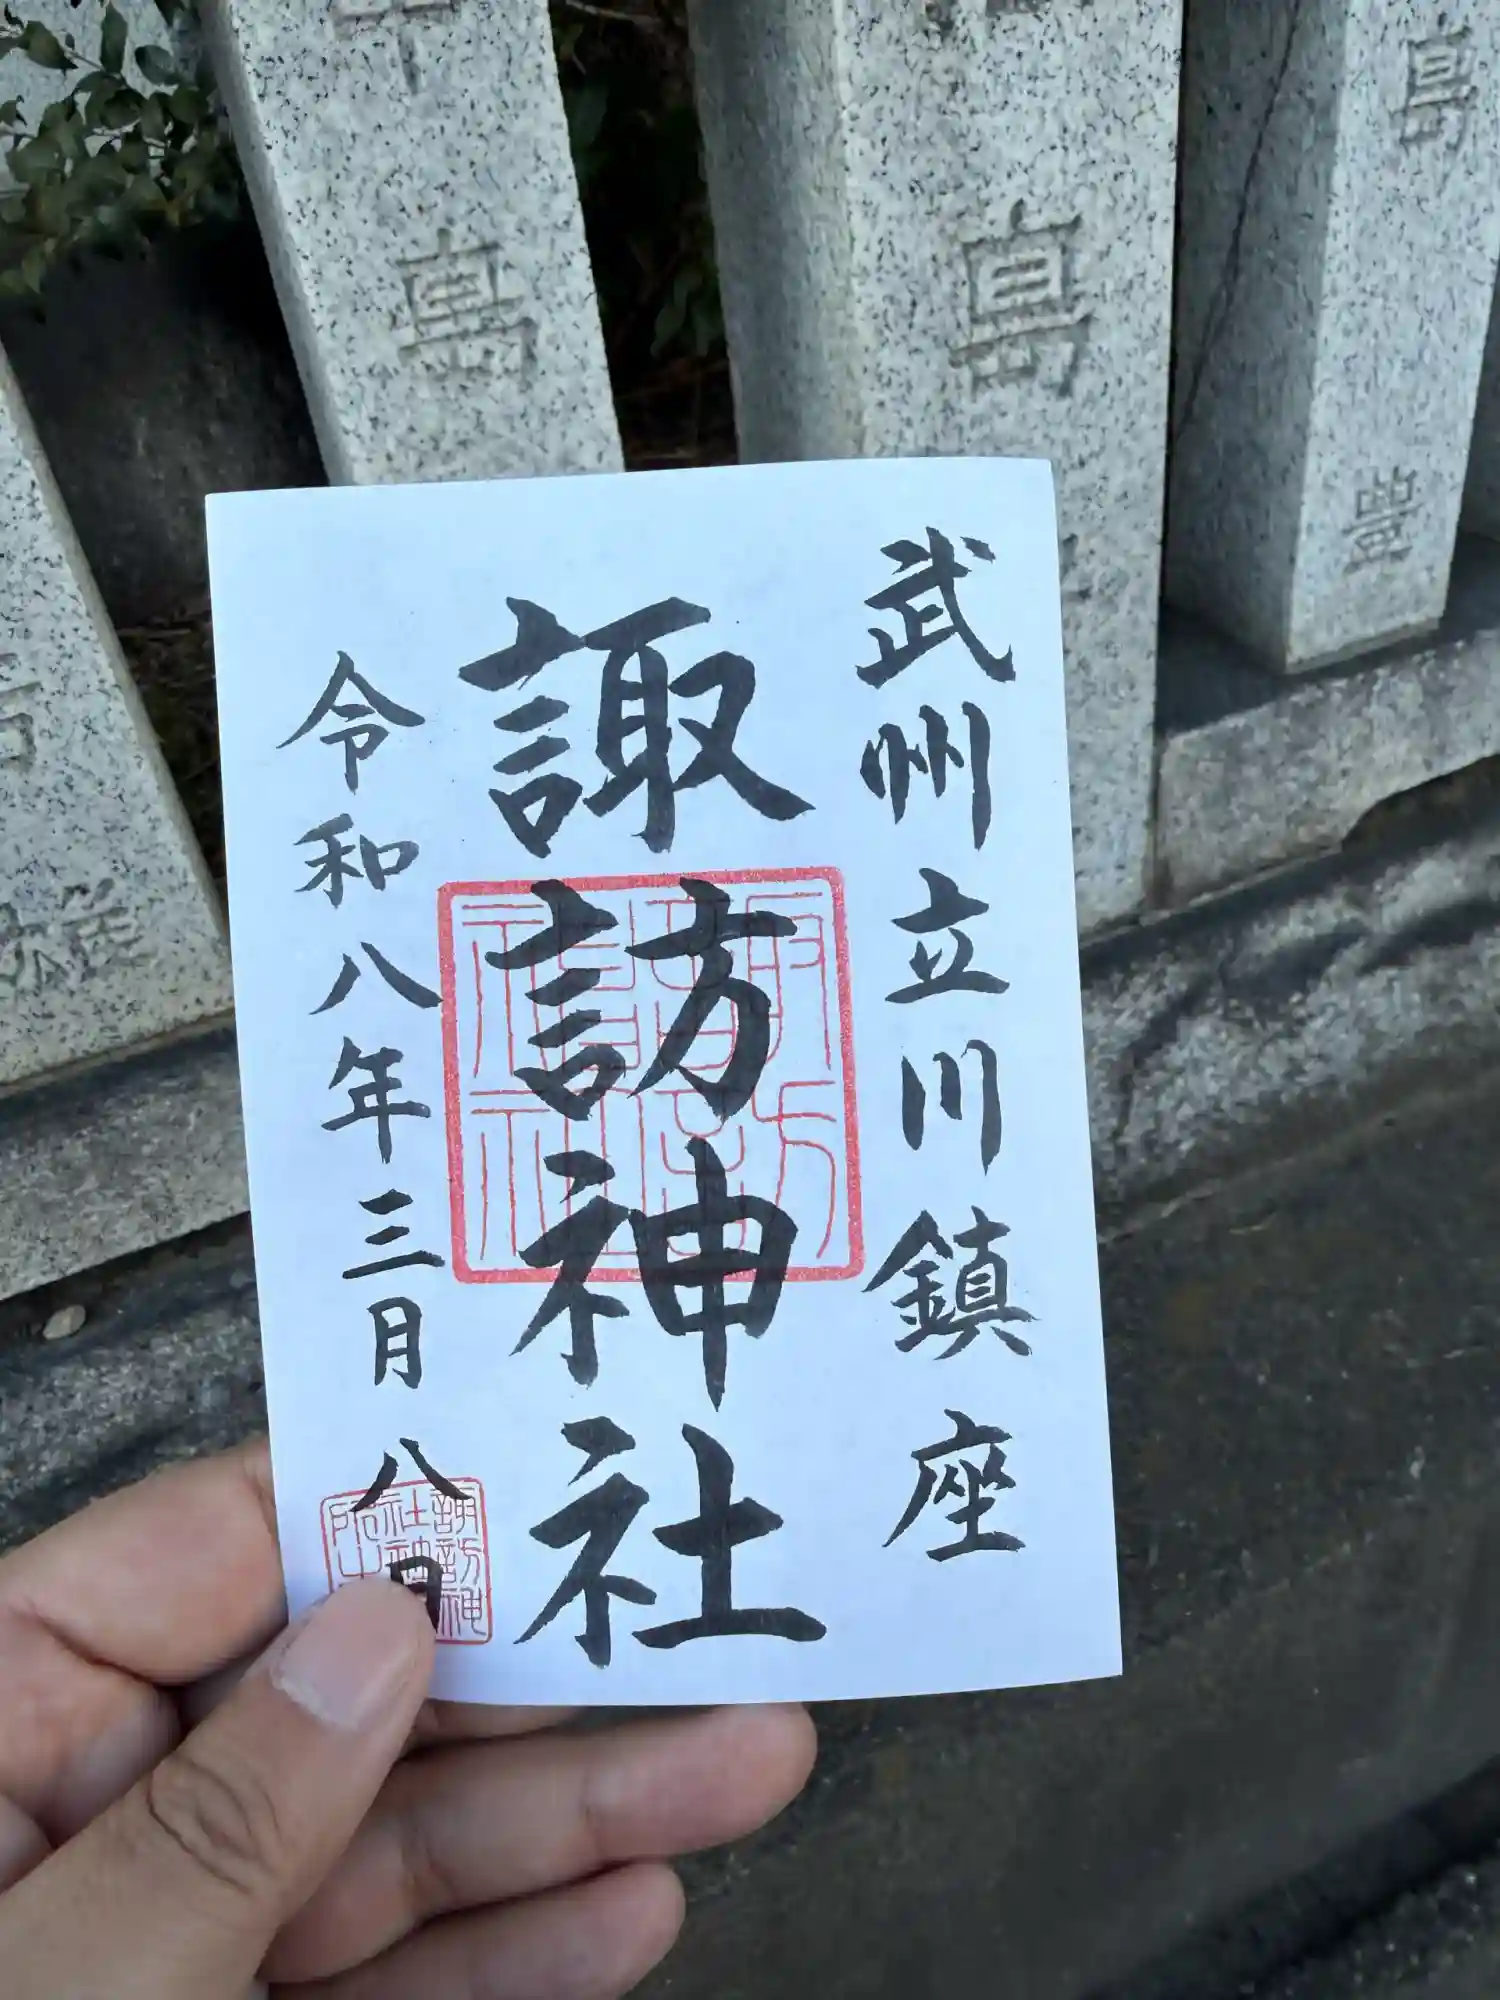 武州立川鎮座
諏訪神社
令和八年三月八日
諏訪神社
島
島
島
豊